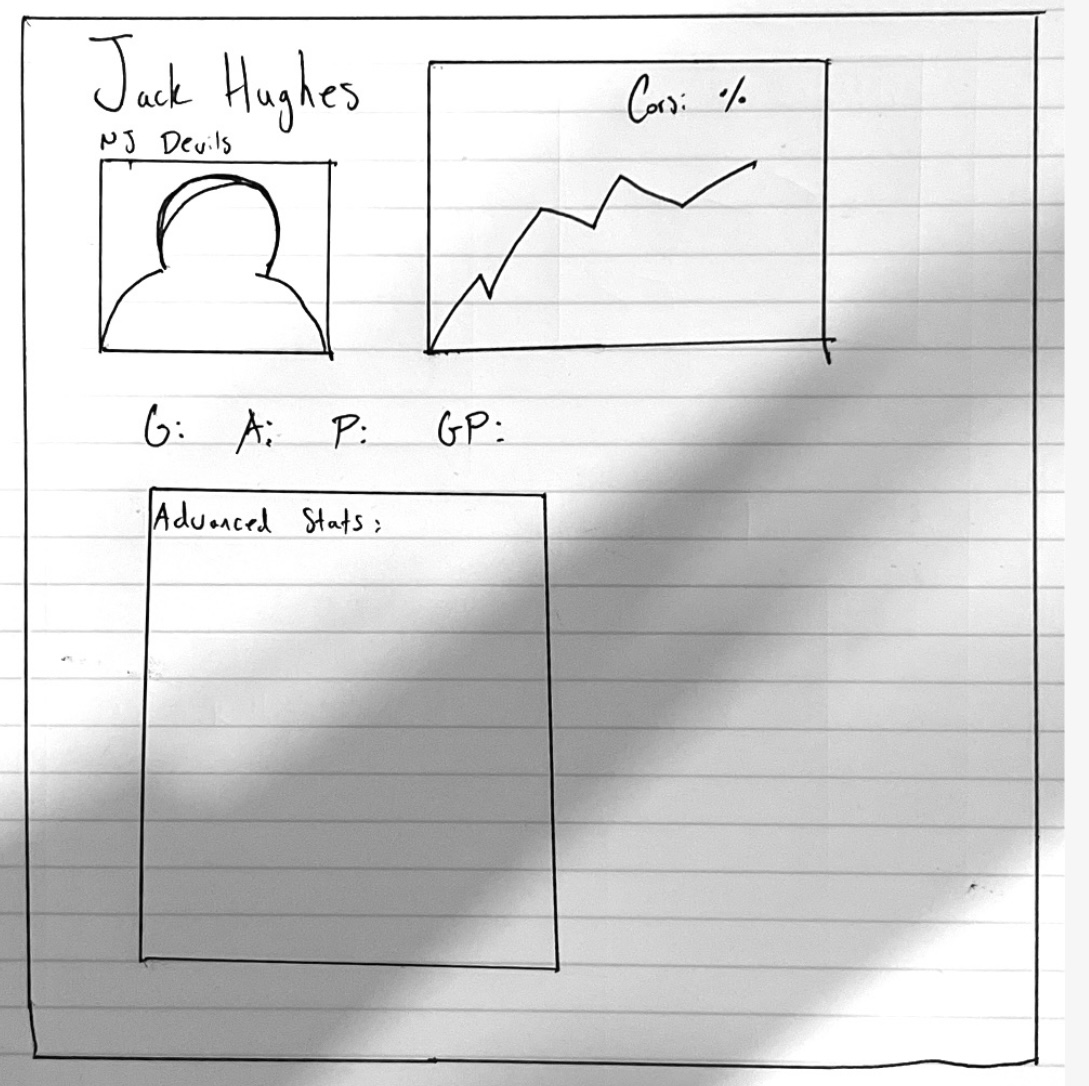 Jack Hughes
NJ Devils
Corsi %
G: A: P: GP:
Advanced Stats: